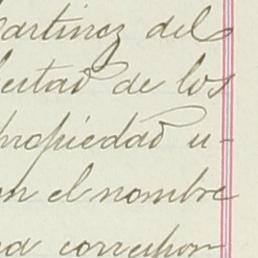 artinez del
ertad de los
propiedad u-
n el nombre
a correspon